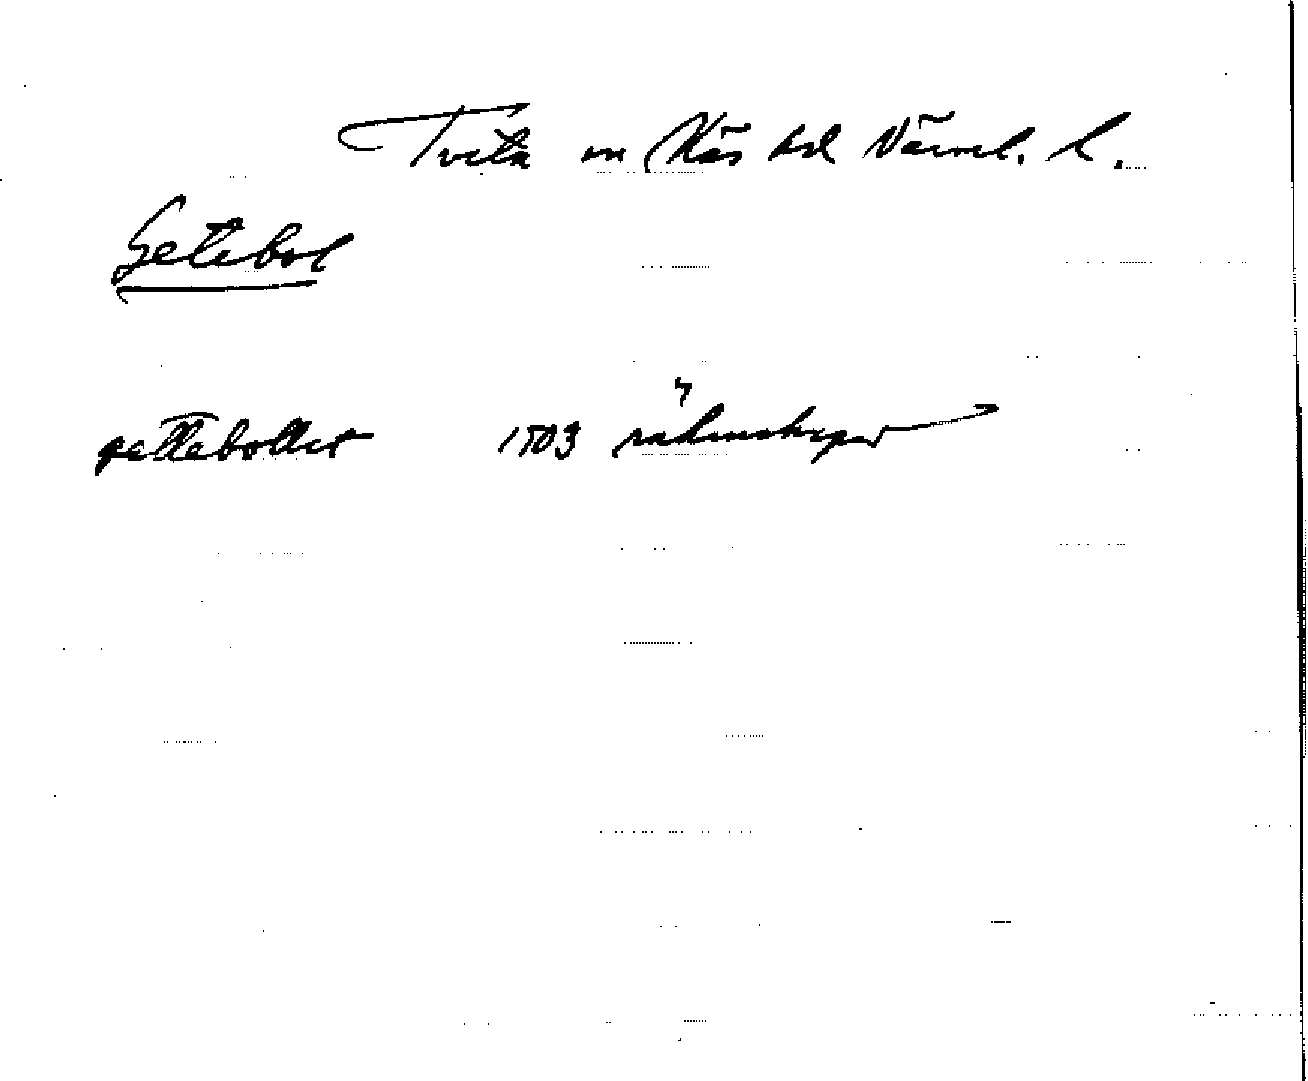 Tveta sn Näs hd Värml. l.
Getebol
gettebollet 1503 räkenskaper